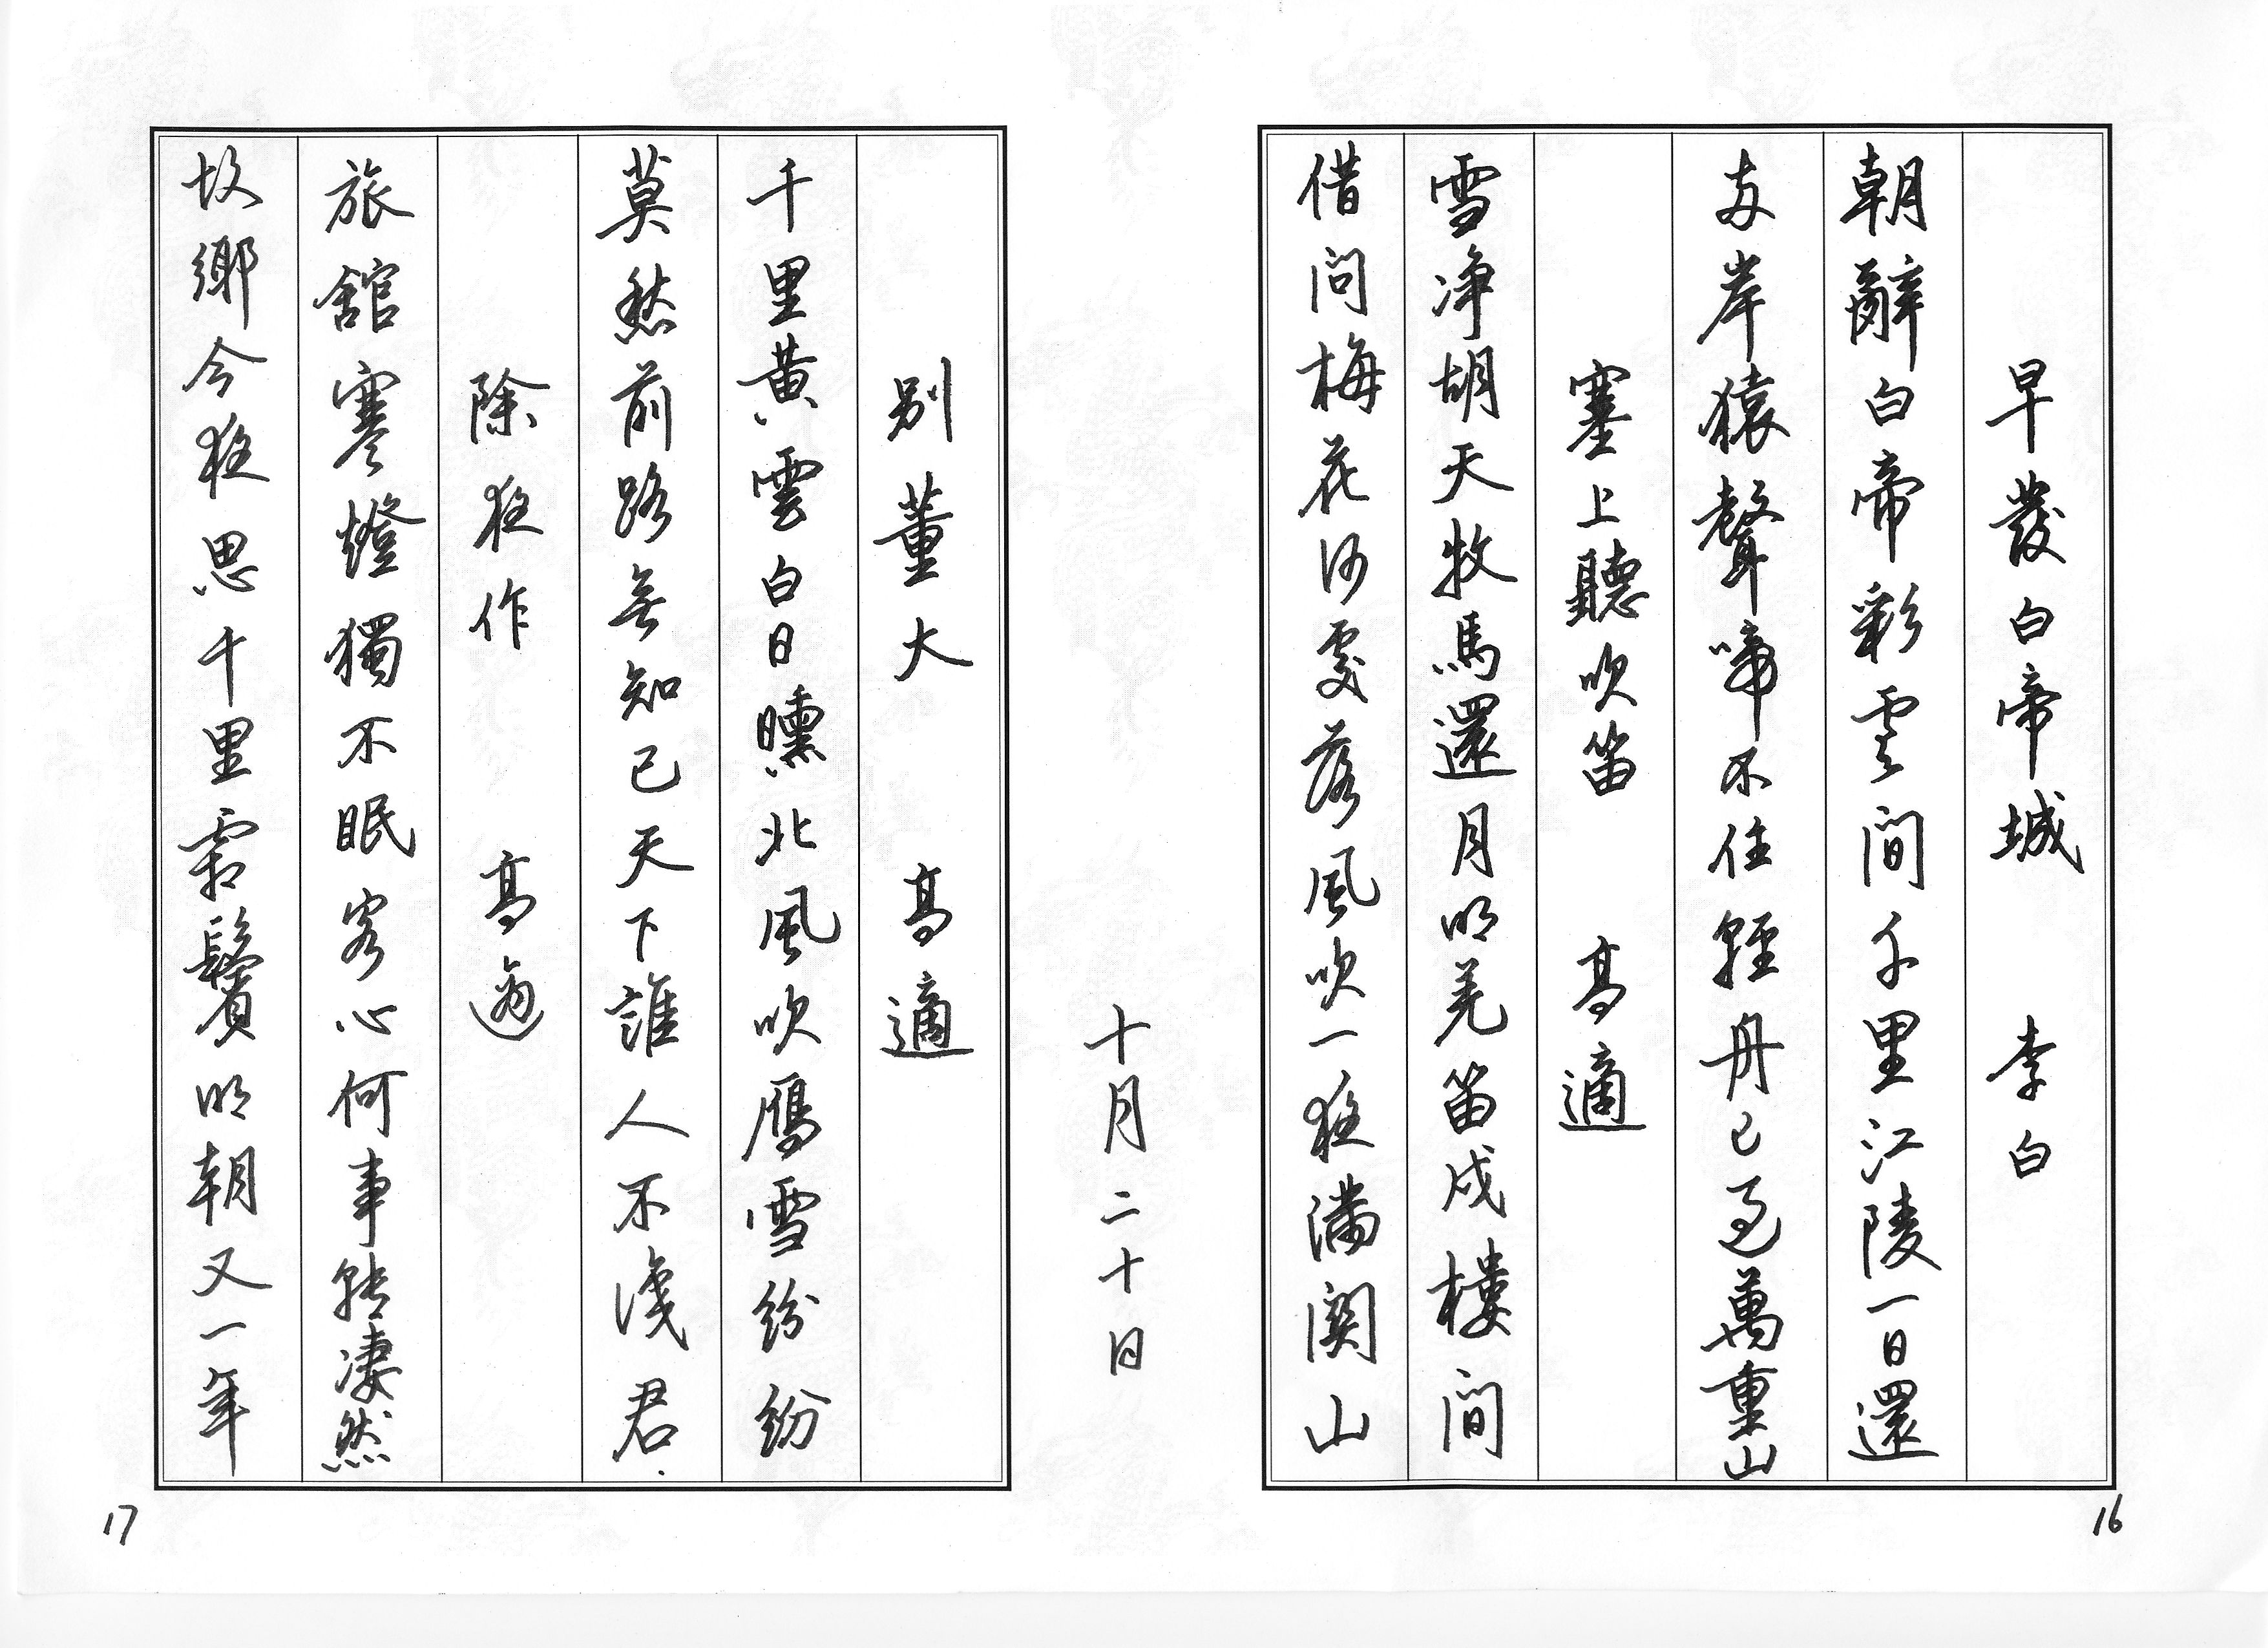 早發白帝城 李白
朝辭白帝彩雲間千里江陵一日還
兩岸猿聲啼不住輕舟已過萬重山
塞上聽吹笛 高適
雪净胡天牧馬還月明羌笛戍樓間
借問梅花何處落風吹一夜滿關山
16
十月二十日
別董大 高適
千里黃雲白日曛北風吹鴈雪紛紛
莫愁前路無知己天下誰人不識君
除夜作 高適
旅舘寒燈獨不眠客心何事轉凄然
故鄉今夜思千里霜鬢明朝又一年
17